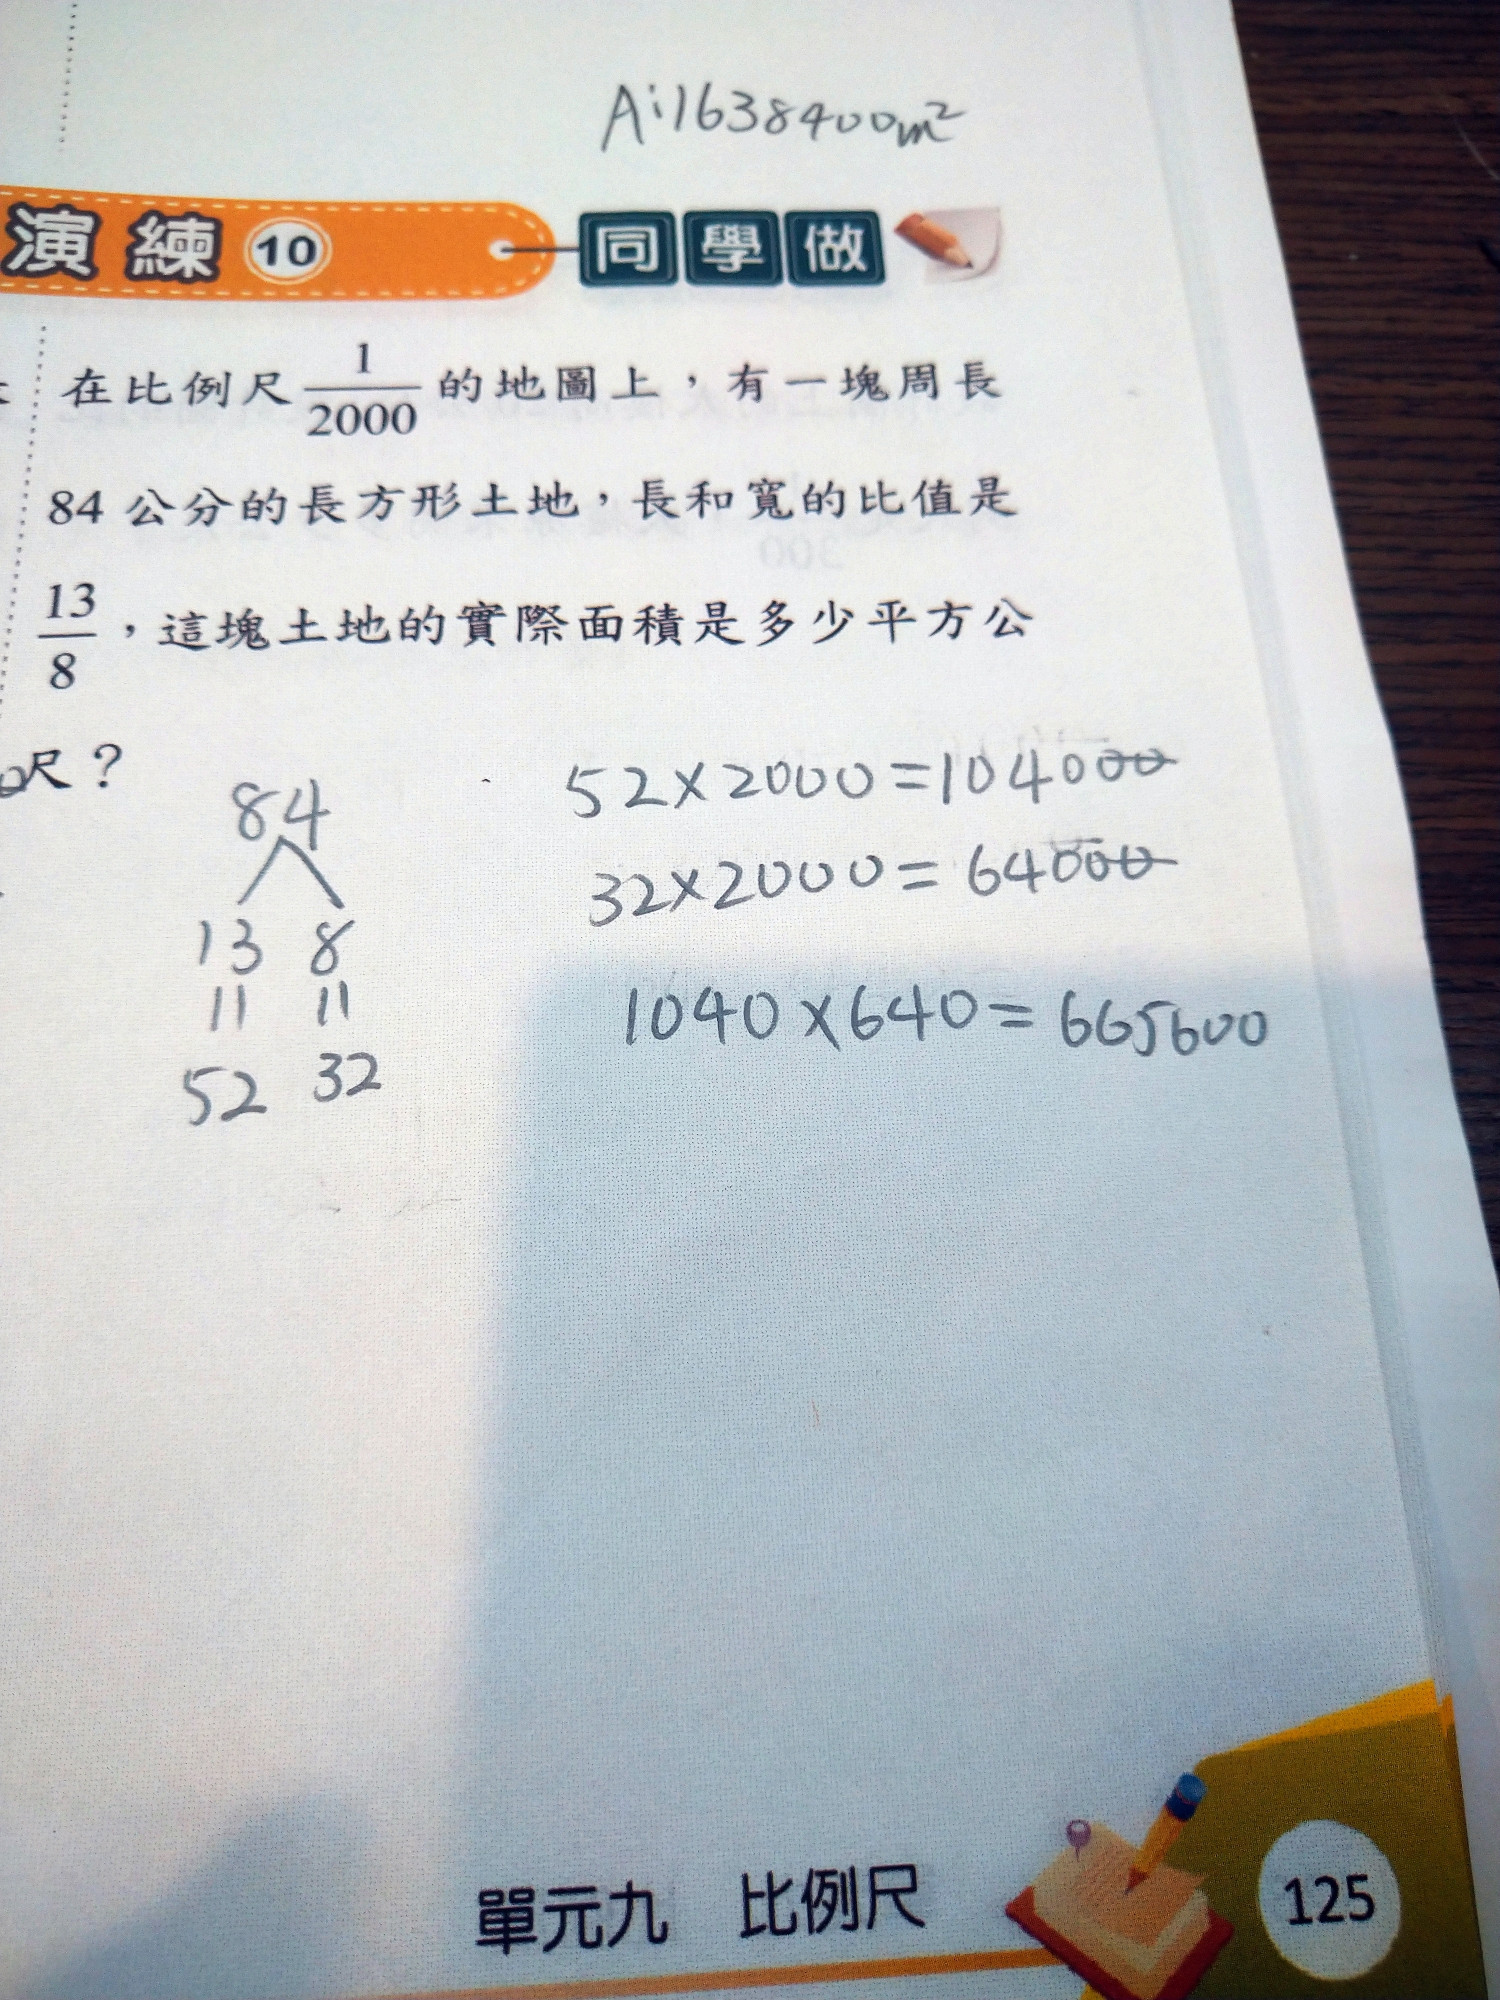 A:1638400m²
演練 10 同學做
在比例尺 1/2000 的地圖上，有一塊周長
84 公分的長方形土地，長和寬的比值是
13/8，這塊土地的實際面積是多少平方公
尺？
84
13 8
11 11
52 32
52×2000=104000
32×2000=64000
1040×640=665600
單元九 比例尺
125